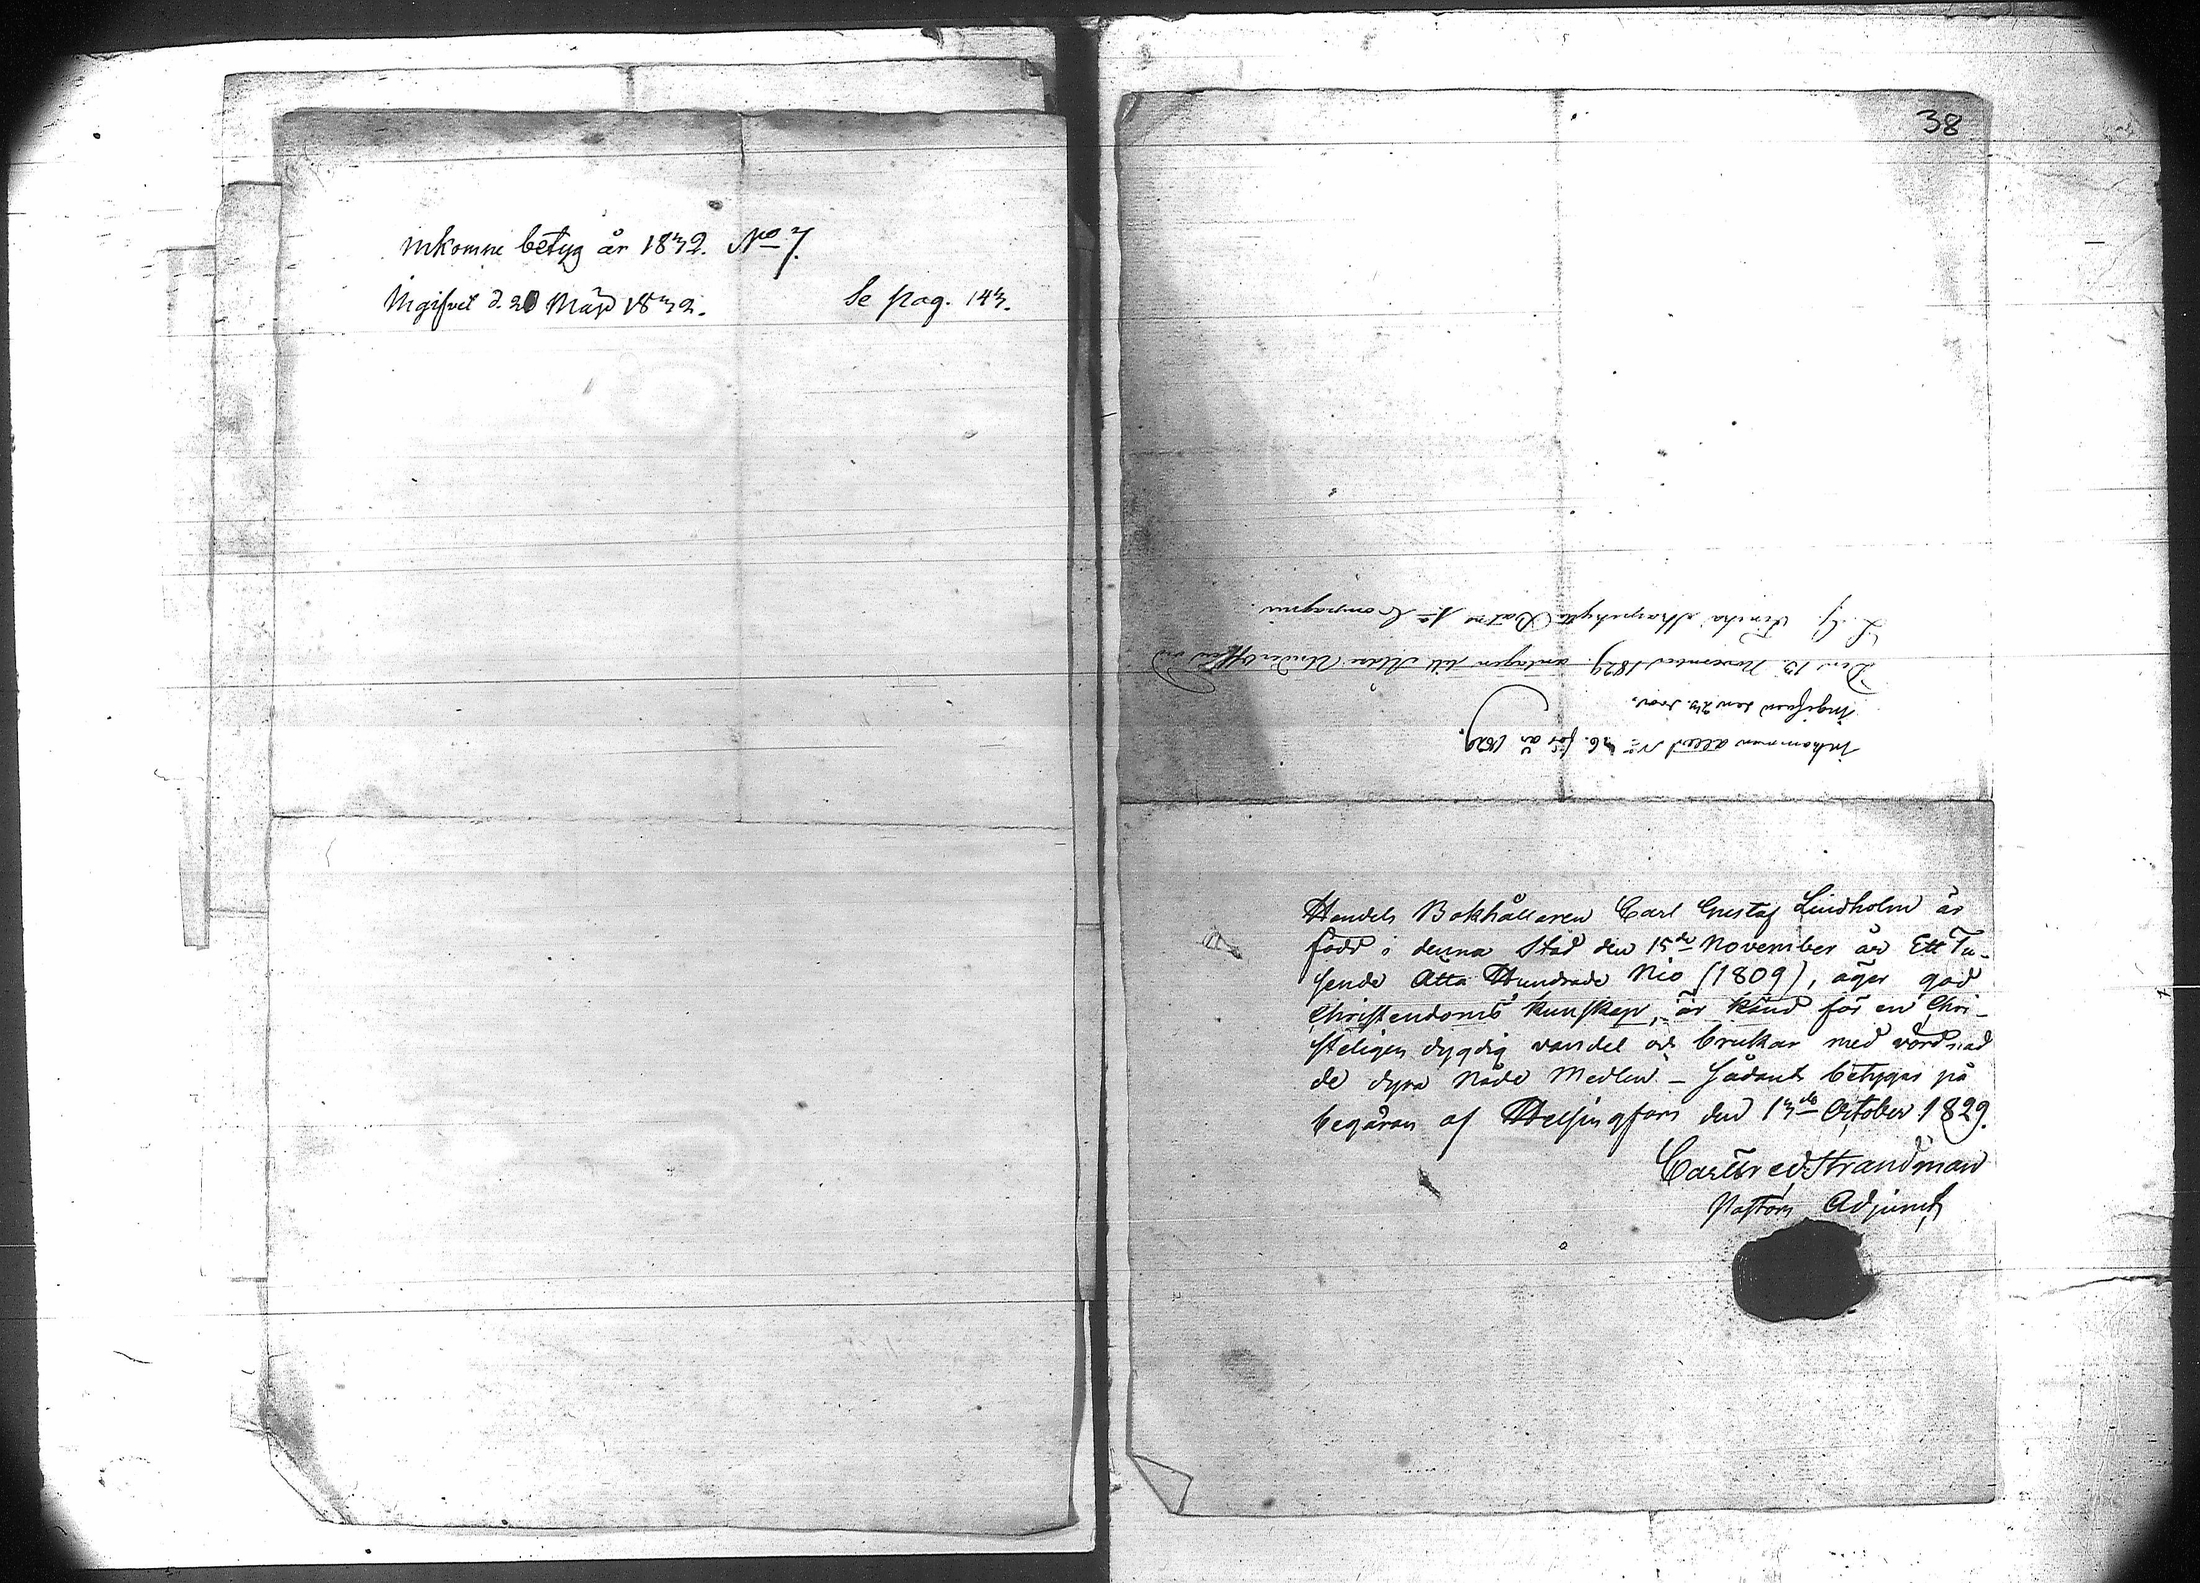 inkomne betyg år 1832. No 7.
Ingifvet d. 20 Mars 1832. Se pag. 143.
38
inkommen attest No 36. för år 1829.
Ingifven den 24. Nov.
Den 13. November 1829. antagen till Under Officer vid
L. G. Finska Skarpskytte Bat:ns 1a Compagnie.
Handels Bokhållaren Carl Gustaf Lindholm är
född i denna Stad den 15de November år Ett Tu-
sende Åtta Hundrade Nio (1809), äger god
Christendoms kunskap, är känd för en Chri-
steligen dygdig vandel och brukar med vördnad
de dyra Nåde Medlen. – Sådant betygas på
begäran af Helsingfors den 13de October 1829.
Carl Fred Strandman
Pastors Adjunct